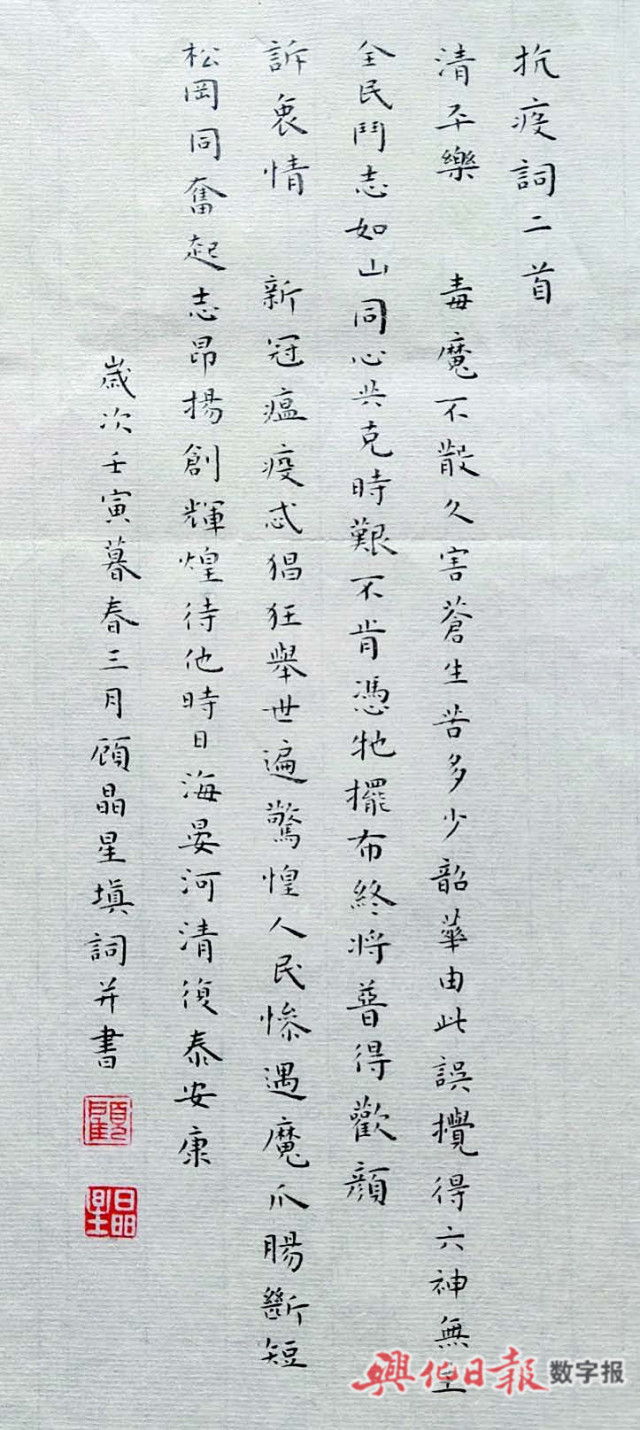 抗疫詞二首
清平樂 毒魔不散久害蒼生苦多少韶華由此誤攪得六神無主
全民鬥志如山同心共克時艱不肯憑牠擺布終將普得歡顏
訴衷情 新冠瘟疫忒猖狂舉世遍驚惶人民慘遇魔爪腸斷短
松岡同奮起志昂揚創輝煌待他時日海晏河清復泰安康
歲次壬寅暮春三月顧晶星填詞并書
顧
晶星
興化日報 数字报